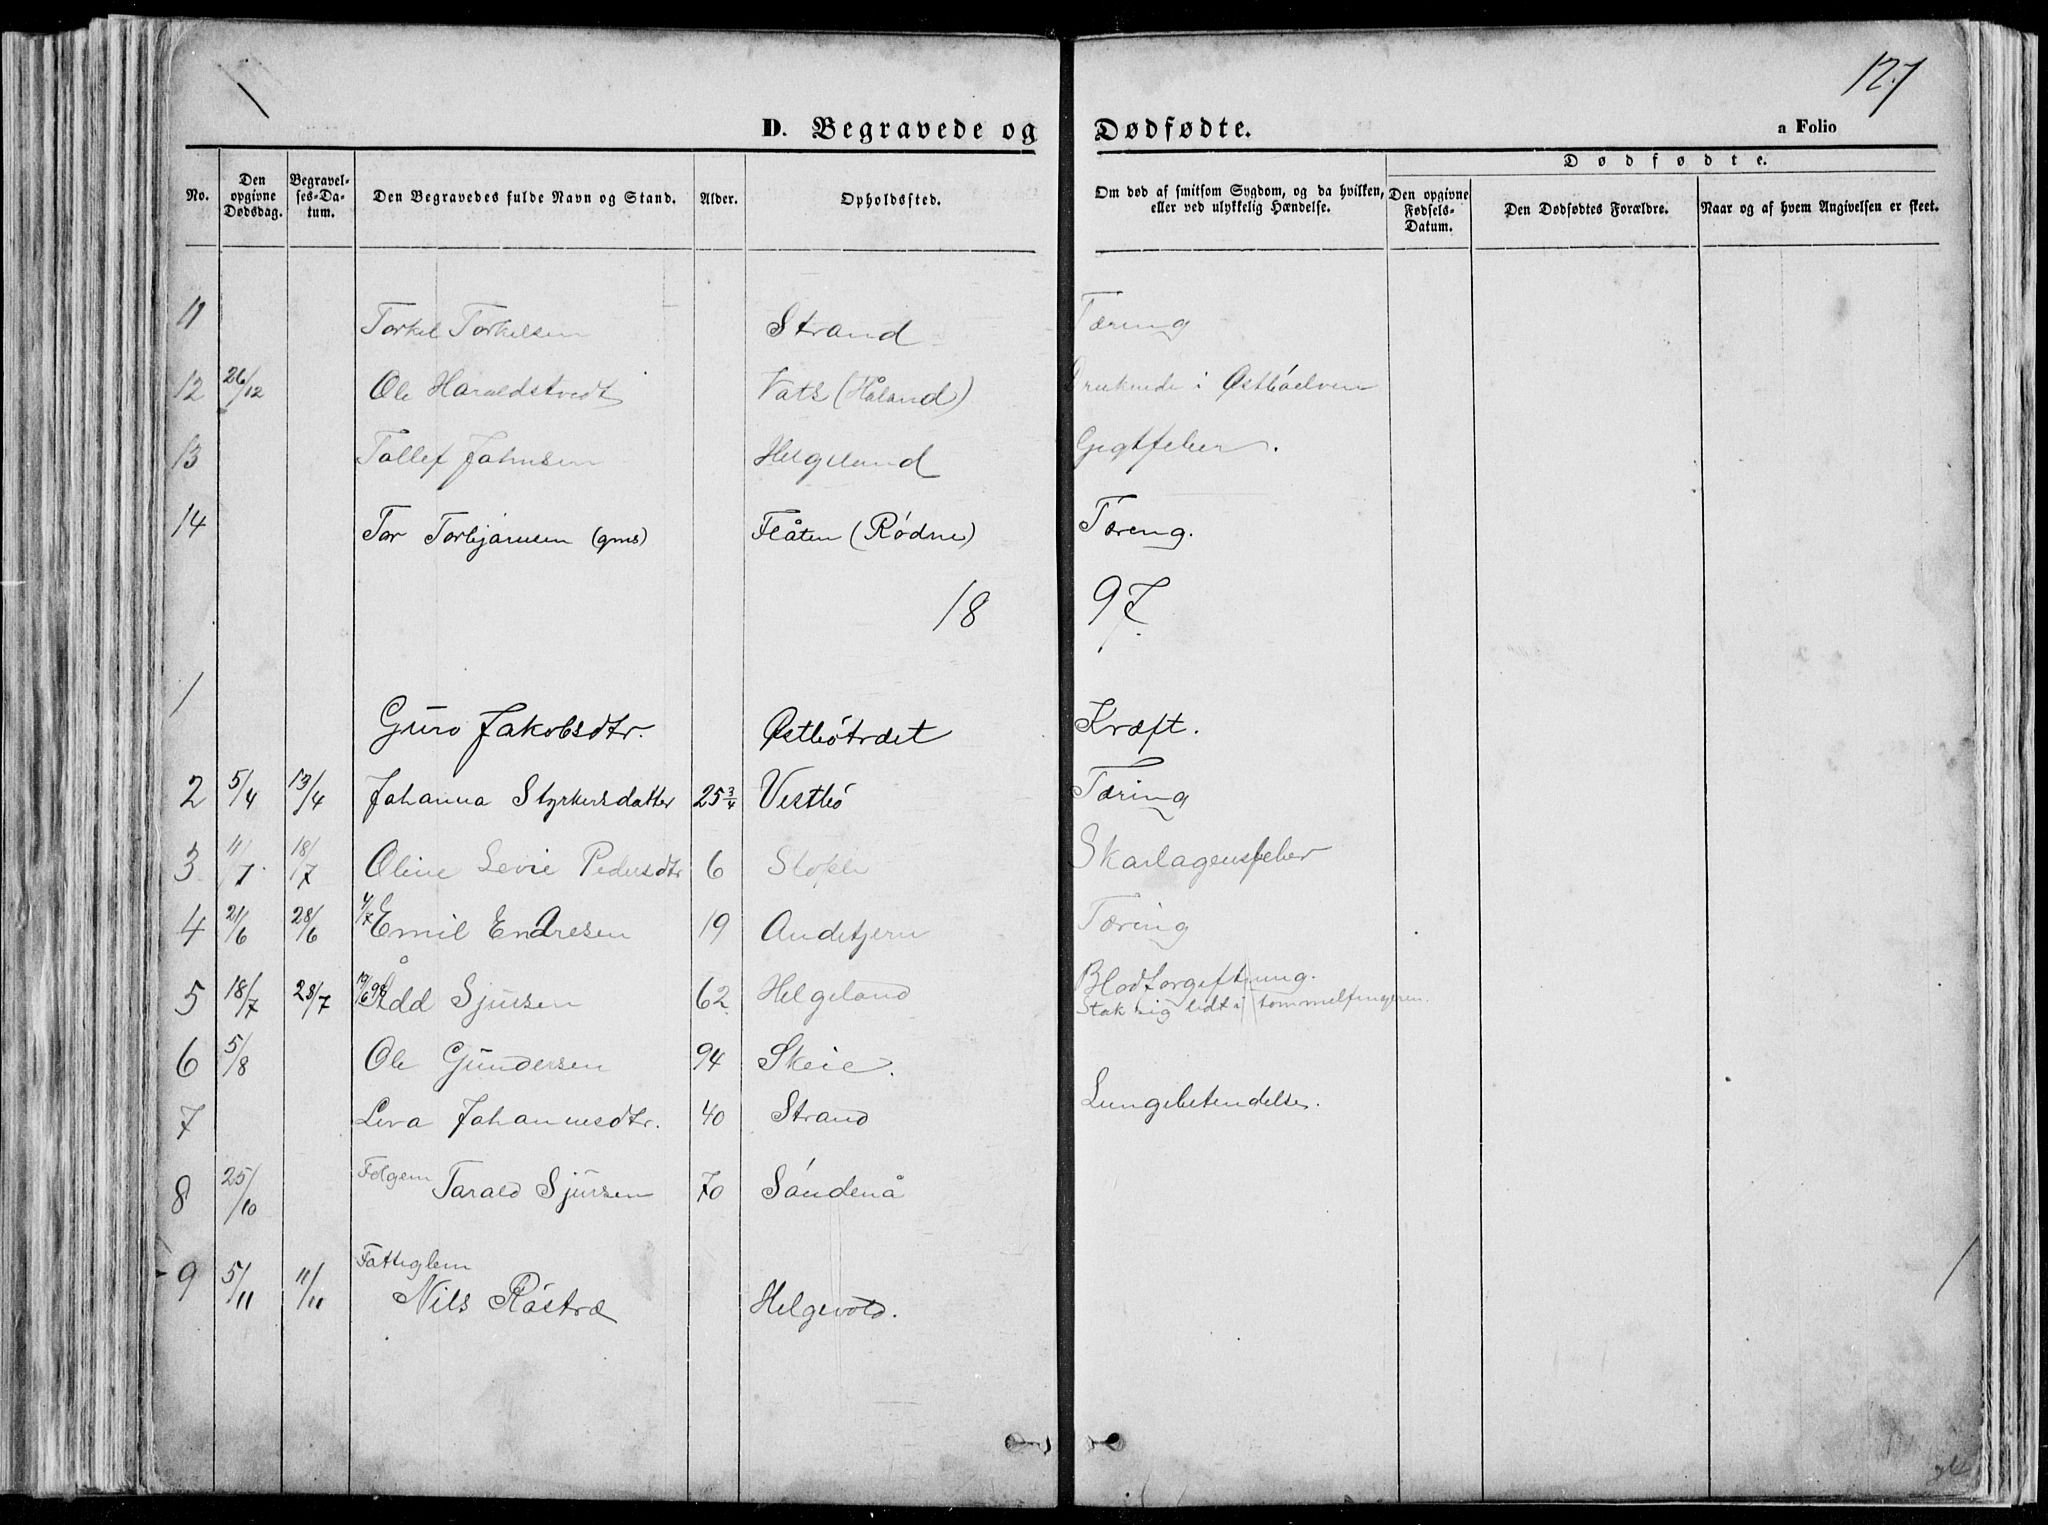 127
D. Begravede og Dødfødte.
a Folio
No.
Den opgivne Dødsdag.
Begravelses-Datum.
Den Begravedes fulde Navn og Stand.
Alder.
Opholdssted.
Om død af smitsom Sygdom, og da hvilken, eller ved ulykkelig Hændelse.
Dødfødte.
Den opgivne Fødsels-Datum.
Den Dødfødtes Forældre.
Naar og af hvem Angivelsen er skeet.
11 Torkel Torkelsen Strand Tæring
12 26/12 Ole Haraldstvedt Vats (Håland) i Østbóelven
13 Tollef Johnsen Helgeland Gigtfeber.
14 Tor Torbjørnsen (gms) Flåten (Rødne) Tæreng.
18 97.
1 Guro Jakobsdtr. Østbótrædet Kræft.
2 5/4 13/4 Johanna Styrkersdatter 25 3/4 Vestbó Tæring
3 11/7 18/7 Oline Sevie Pedersdtr 6 Stople Skarlagensfeber
4 21/6 28/6 4/7 Emil Endresen 19 Andetjern Tæring
5 18/7 28/7 19/6 98 Ådd Sjursen 62 Helgeland Blodforgiftning.
Stak sig lidt i tommelfingeren.
6 5/8 Ole Gundersen 94 Skeie.
7 Siva Johannesdtr. 40 Strand Lungebetendelse.
8 25/10 Folgem Tarald Sjursen 70 Sóndenå
9 5/11 11/11 Fattiglem
Nils Róstræ Helgevold.